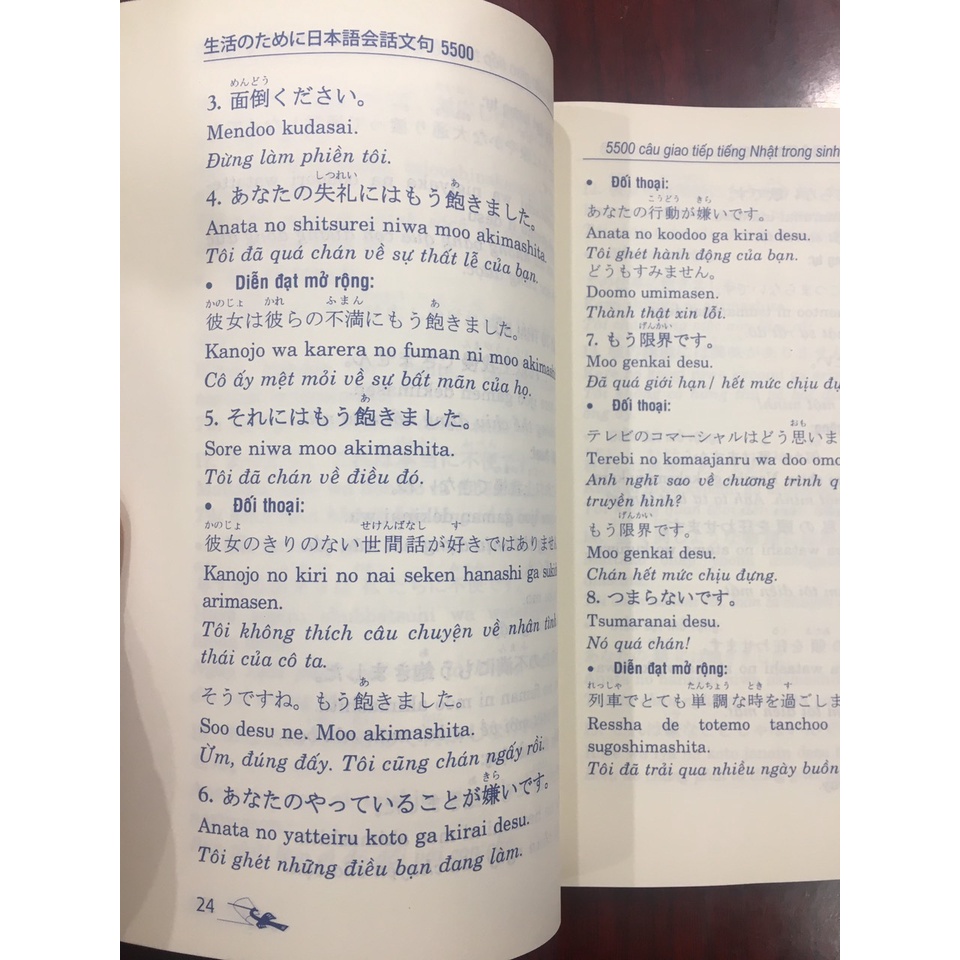 生活のために日本語会話文句 5500
めんどう
3. 面倒ください。
Mendoo kudasai.
Đừng làm phiền tôi.
しつれい あ
4. あなたの失礼にはもう飽きました。
Anata no shitsurei niwa moo akimashita.
Tôi đã quá chán về sự thất lễ của bạn.
• Diễn đạt mở rộng:
かのじょ かれ ふまん あ
彼女は彼らの不満にもう飽きました。
Kanojo wa karera no fuman ni moo akimashita
Cô ấy mệt mỏi về sự bất mãn của họ.
あ
5. それにはもう飽きました。
Sore niwa moo akimashita.
Tôi đã chán về điều đó.
• Đối thoại:
かのじょ せけんばなし す
彼女のきりのない世間話が好きではありません
Kanojo no kiri no nai seken hanashi ga suki
arimasen.
Tôi không thích câu chuyện về nhân tình
thái của cô ta.
あ
そうですね。もう飽きました。
Soo desu ne. Moo akimashita.
Ừm, đúng đấy. Tôi cũng chán ngấy rồi.
きら
6. あなたのやっていることが嫌いです。
Anata no yatteiru koto ga kirai desu.
Tôi ghét những điều bạn đang làm.
24
5500 câu giao tiếp tiếng Nhật trong sinh
• Đối thoại:
こうどう きら
あなたの行動が嫌いです。
Anata no koodoo ga kirai desu.
Tôi ghét hành động của bạn.
どうもすみません。
Doomo umimasen.
Thành thật xin lỗi.
げんかい
7. もう限界です。
Moo genkai desu.
Đã quá giới hạn/ hết mức chịu
• Đối thoại:
おも
テレビのコマーシャルはどう思いま
Terebi no komaajanru wa doo omo
Anh nghĩ sao về chương trình
truyền hình?
げんかい
もう限界です。
Moo genkai desu.
Chán hết mức chịu đựng.
8. つまらないです。
Tsumaranai desu.
Nó quá chán!
• Diễn đạt mở rộng:
れっしゃ たんちょう とき す
列車でとても単調な時を過ごしま
Ressha de totemo tanchoo
sugoshimashita.
Tôi đã trải qua nhiều ngày buồn